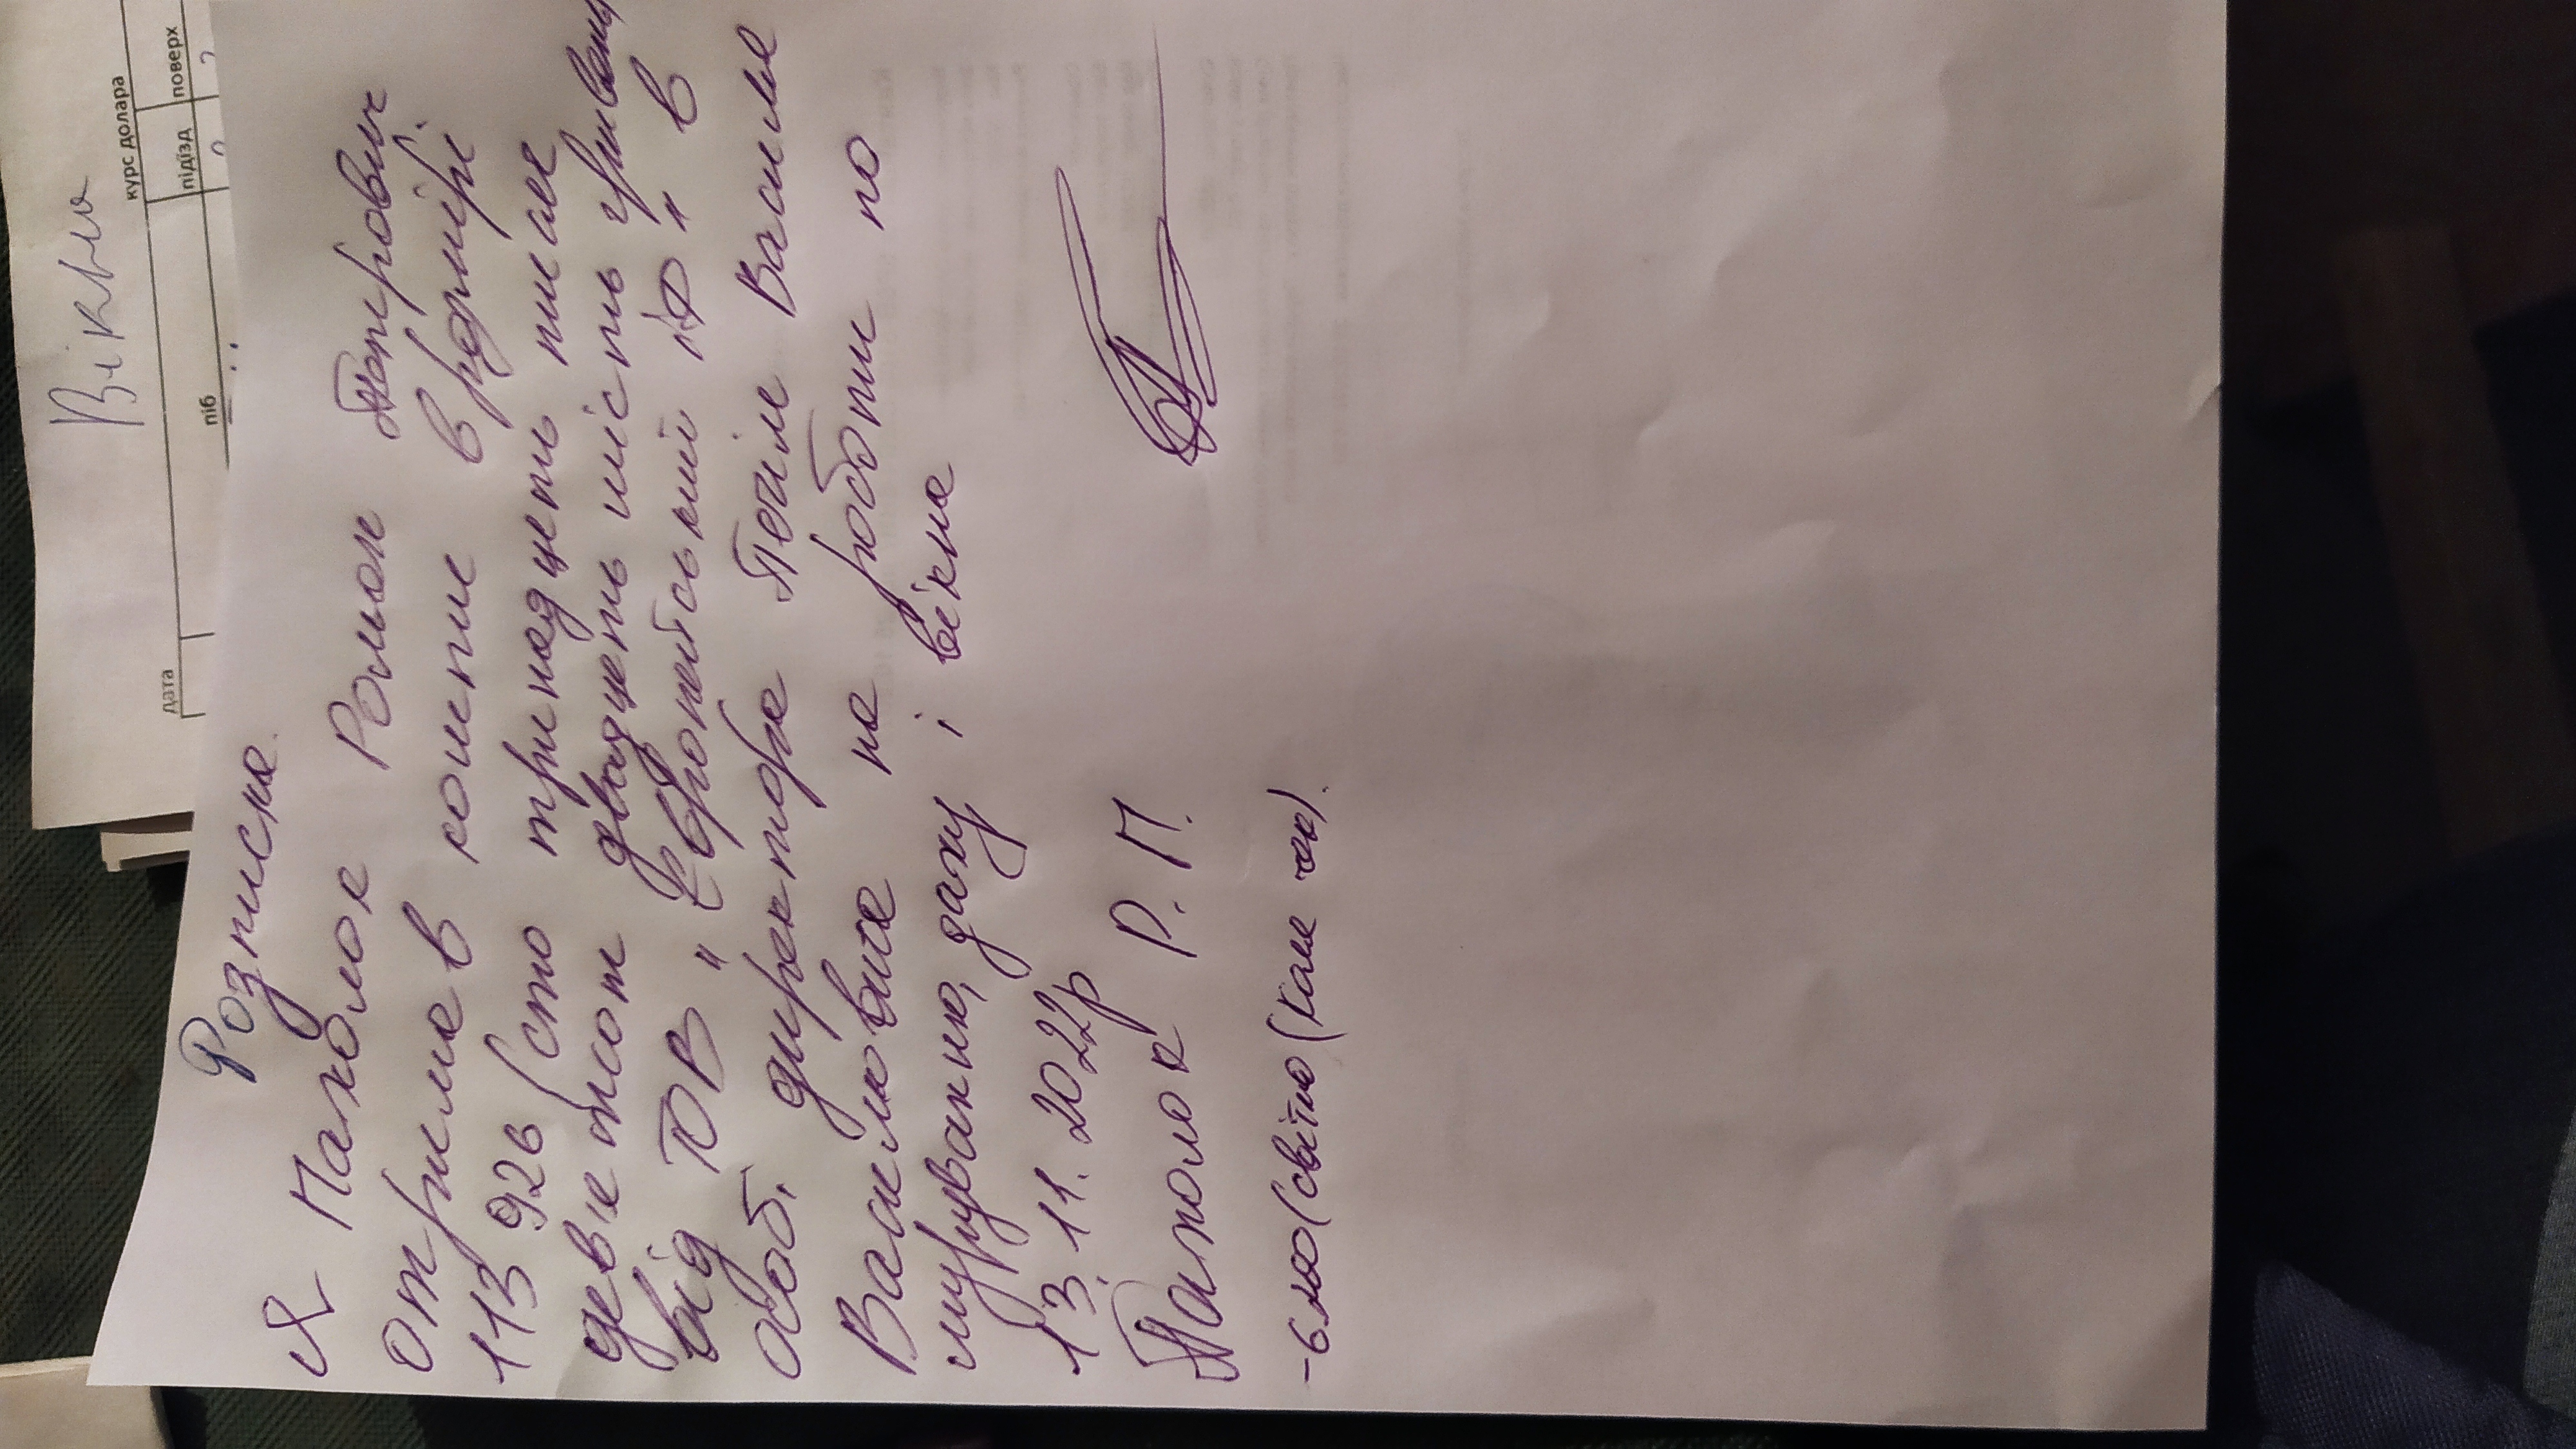 Вікна
курс долара
дата
піб
підїзд
поверх
Розписка.
Я Пахолок Роман Петрович
отримав кошти в розмірі
113 926 (сто тринадцеть тисяч
дев'етсот двадцеть шість гривень
від ТОВ "Європейський ІФ" в
особі директора Василя
Васильовича на роботи по
муруванню, даху і вікна
13.11.2022р
Пахолок Р. П.
-6200 (світло (Коля